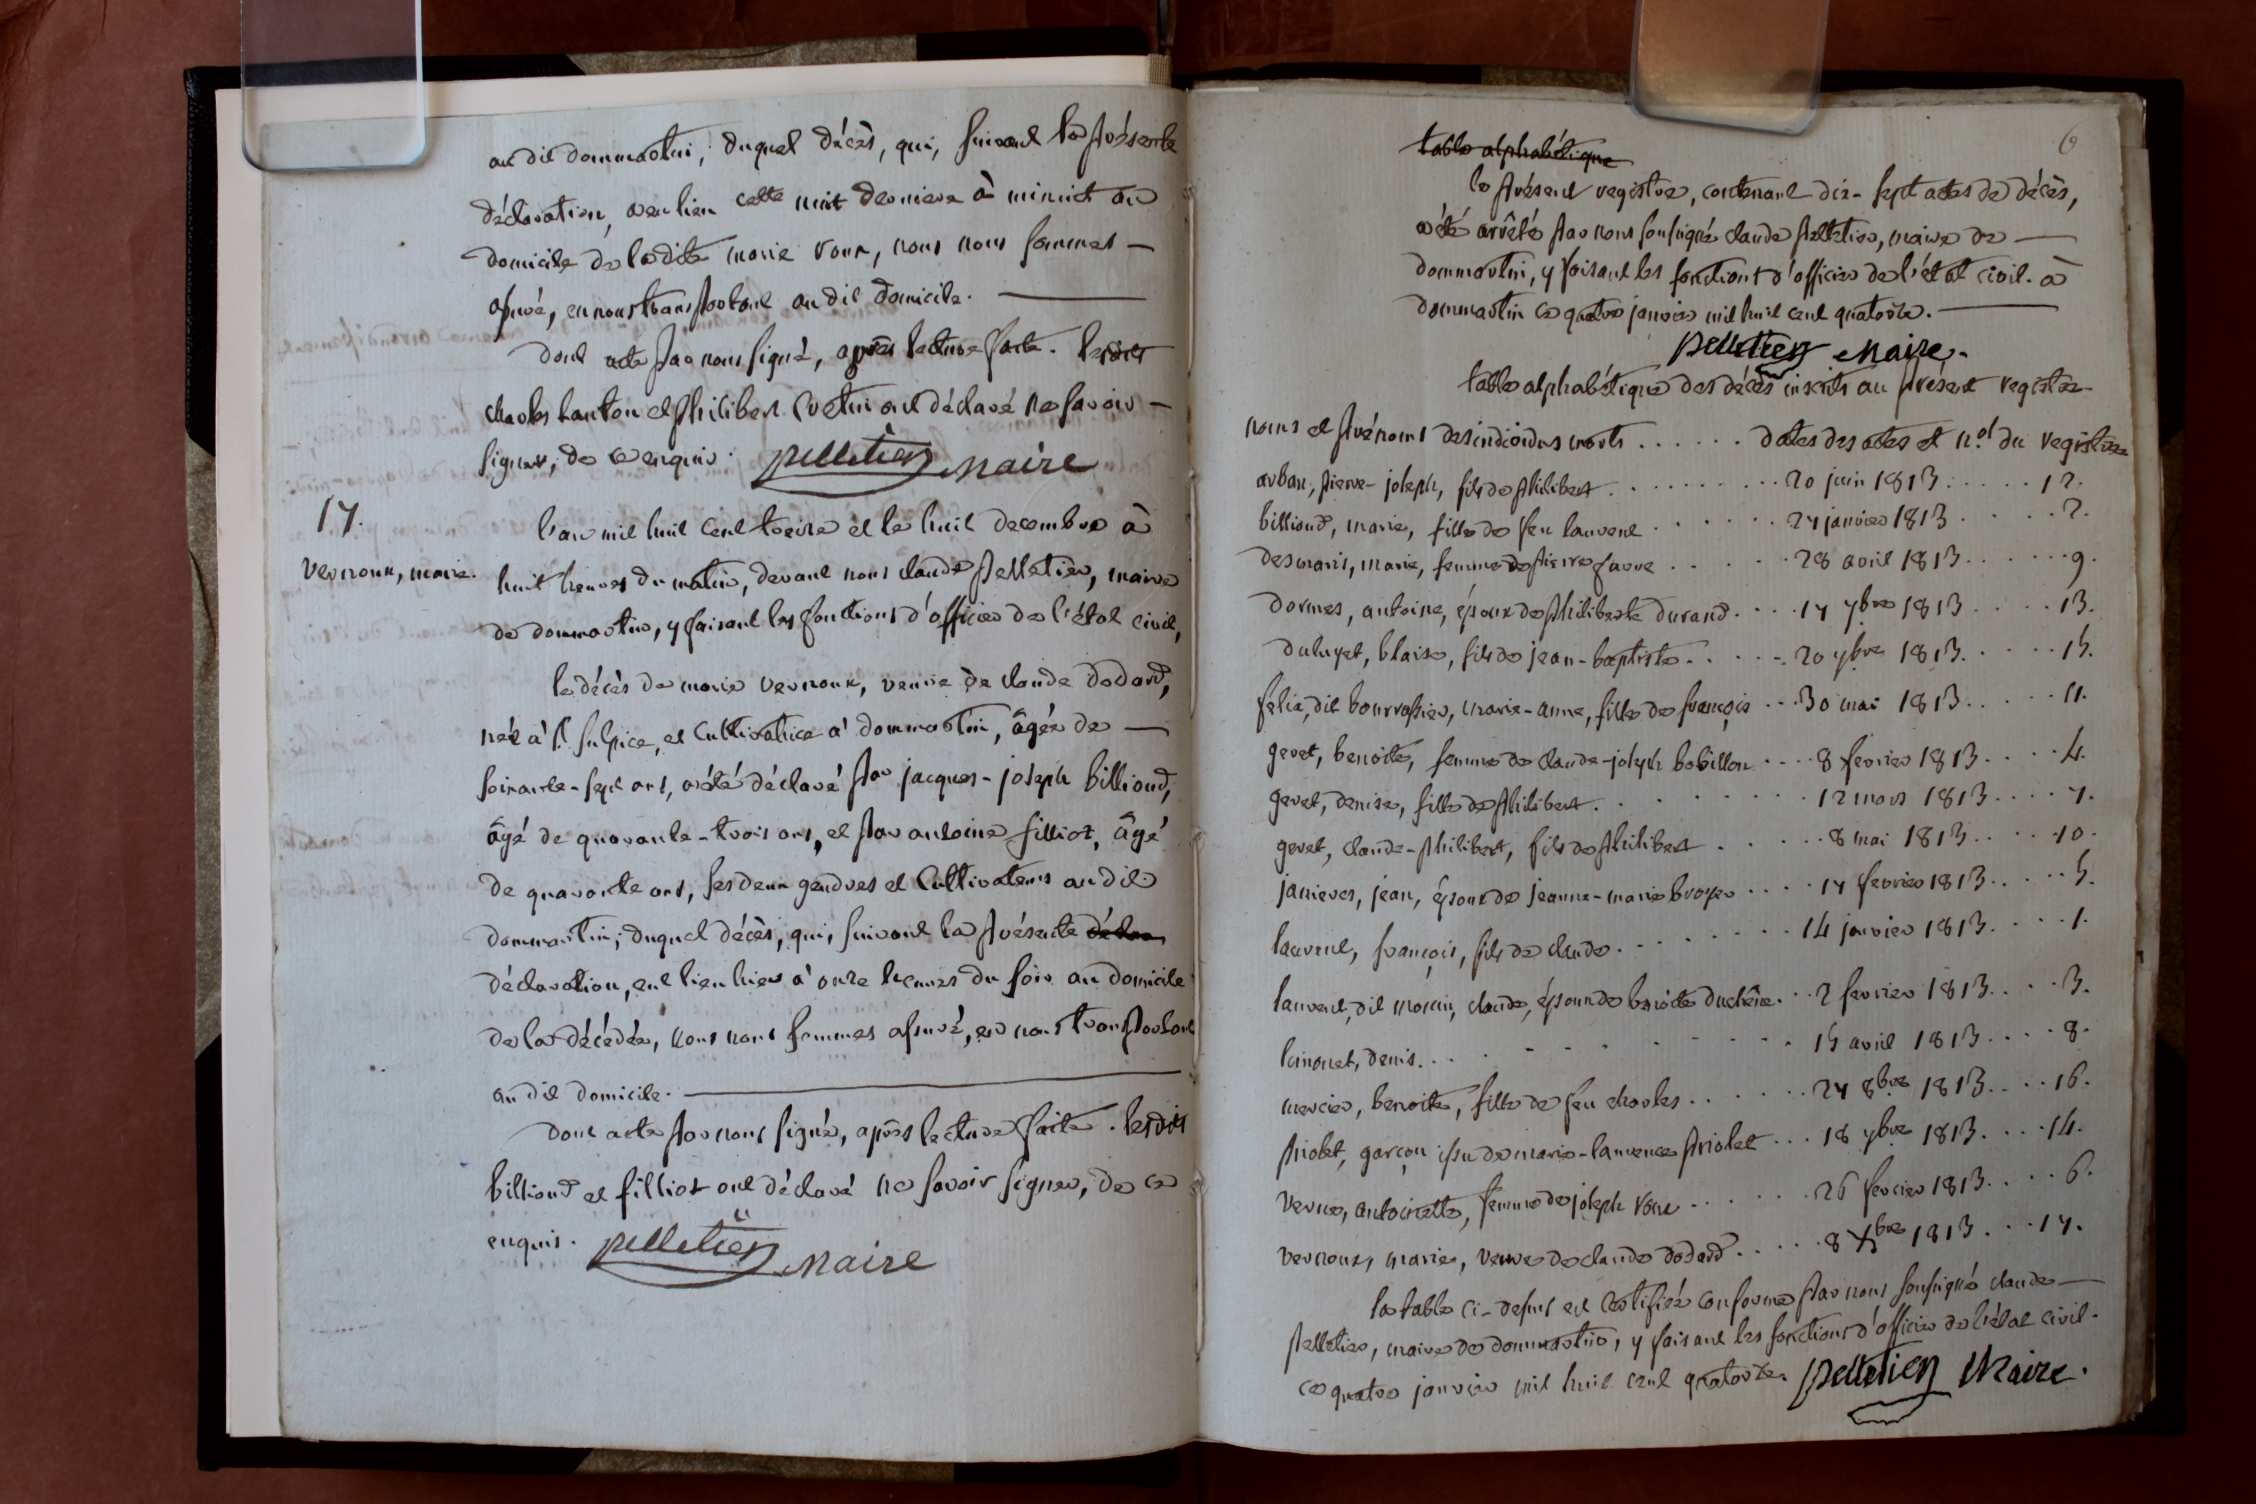 au dit dommartin; duquel décès, qui, suivant la présente
déclaration, a eu lieu cette nuit derniere à minuit au
domicile de ladite marie roux, nous nous sommes —
assuré, en nous transportant au dit domicile. —
Dont acte par nous signé, après lecture faite. lesdits
charles lauton et philibert cretin ont déclaré ne savoir —
signer, de ce enquis. pelletier maire
17.
vernoux, marie.
l'an mil huit cent treize et le huit decembre à
huit heures du matin, devant nous claude pelletier, maire
de dommartin, y faisant les fonctions d'officier de l'état civil,
le décès de marie vernoux, veuve de claude dodard,
née à St. sulpice, et cultivatrice à dommartin, âgée de —
soixante-sept ans, a été déclaré par jacques-joseph billioud,
âgé de quarante-trois ans, et par antoine filliot, âgé
de quarante ans, ses deux gendres et cultivateurs au dit
dommartin; duquel décès, qui, suivant la présente déclara
déclaration, eut lieu hier à onze heures du soir au domicile
de la décédée, nous nous sommes assuré, en nous transportant
au dit domicile. —
dont acte par nous signé, après lecture faite. lesdits
billioud et filliot ont déclaré ne savoir signer, de ce
enquis. pelletier maire
6
table alphabétique
le présent registre, contenant dix-sept actes de décès,
a été arrêté par nous soussigné claude pelletier, maire de —
dommartin, y faisant les fonctions d'officier de l'état civil. à
dommartin ce quatre janvier mil huit cent quatorze. —
pelletier maire.
table alphabétique des décès inscrits au présent registre
noms et prénoms des individus morts . . . . . . dates des actes et n.os du registre
arban, pierre-joseph, fils de philibert . . . . . . 20 juin 1813 . . . . . 12.
billioud, marie, fille de feu laurent . . . . . . 27 janvier 1813 . . . . . 2.
desmaris, marie, femme de pierre favre . . . . . . 28 avril 1813 . . . . . 9.
dormes, antoine, époux de philiberte durand . . . . 17 7bre 1813 . . . . . 13.
duluyet, blaise, fils de jean-baptiste . . . . . 20 7bre 1813 . . . . . 15.
felix, dit bourrassier, marie-anne, fille de françois . . . 30 mai 1813 . . . . . 11.
gevet, benoite, femme de claude-joseph bobillon . . . . 8 fevrier 1813 . . . . 4.
gevet, denise, fille de philibert . . . . . . 12 mars 1813 . . . . 7.
gevet, claude-philibert, fils de philibert . . . . . 8 mai 1813 . . . . 10.
janieres, jean, époux de jeanne-marie broyer . . . . 17 fevrier 1813 . . . . 5.
laurent, françois, fils de claude . . . . . . 14 janvier 1813 . . . . 1.
laurent, dit morin, claude, époux de benoite duchêne . . . 2 fevrier 1813 . . . . 3.
limonet, denis . . . . . . 15 avril 1813 . . . . 8.
mercier, benoite, fille de feu charles . . . . . . 27 8bre 1813 . . . . 16.
priolet, garçon issu de marie-laurence priolet . . . 18 7bre 1813 . . . . 14.
verne, antoinette, femme de joseph roux . . . . . . 26 fevrier 1813 . . . . 6.
vernoux, marie, veuve de claude dodard . . . . . 8 Xbre 1813 . . . 17.
la table ci-dessus est certifiée conforme par nous soussigné claude —
pelletier, maire de dommartin, y faisant les fonctions d'officier de l'état civil.
ce quatre janvier mil huit cent quatorze. pelletier Maire.